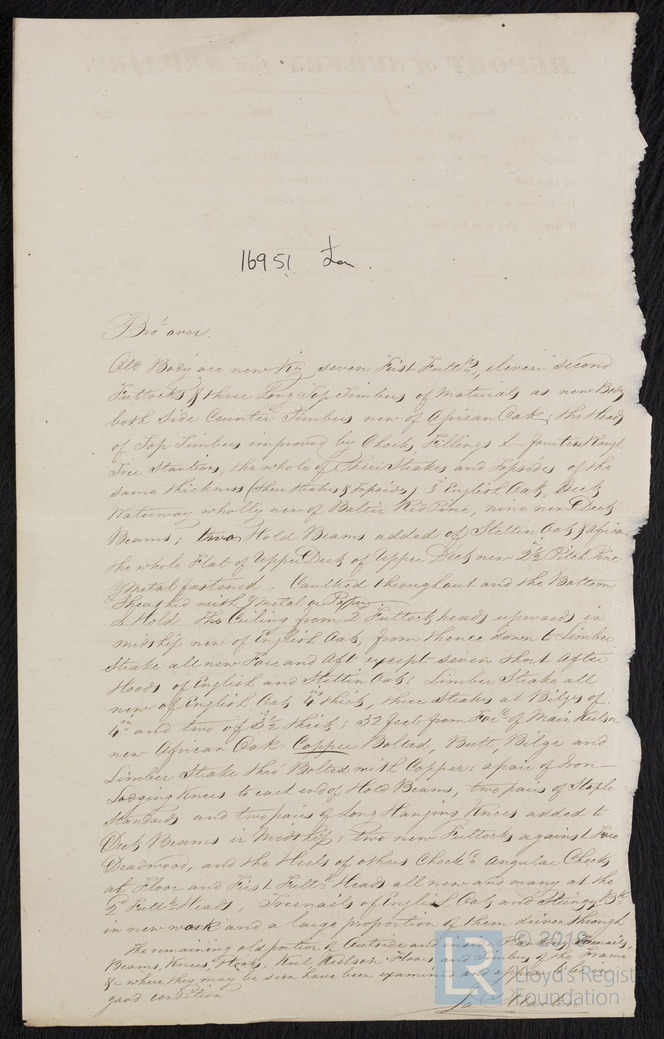 16951 Lon
Bro.t over.
Old Body are new Viz. seven First Futt.ks, eleven second
Futtocks & three Long Top Timbers of Materials as new Body
both Side Counter Timbers new of African Oak, the Heads
of Top Timbers improved by Chocks, Fillings & Rough
Tree Stantions, the whole of Sheer Strakes and Topsides of the
same thickness (Sheer Strakes & Topsides) 3 English Oak, Deck
Waterway wholly new of Baltic Red Pine, nine new Deck
Beams; two Hold Beams added of Stettin Oak & African
the whole Flat of Upper Deck of Upper Deck new 2½ in Pitch Pine
Y Metal fastened. Caulked throughout and the Bottom
Sheathed with Y Metal on Paper
In Hold. the Ceiling from 2 Futtock heads upwards in
midship new of English Oak, from thence down to Limber
Strake all new Fore and Aft except seven short After
Hoods of English and Stettin Oak; Limber Strake all
new of English Oak 4 in thick, three Strakes at Bilges of
4 in and two of 3½ thick; 32 feet from of Main Keelson
new African Oak. Copper Bolted, Butt, Bilge and
Limber Strake thro' Bolted with Copper: a pair of Iron
Lodging Knees to each end of Hold Beams, two pairs of Staple
Standards and two pairs of Long Hanging Knees added to
Deck Beams in Midship; two new Futtocks against Fore
Deadwood, and the Heels of others Chock.d Angular Chocks
at Floor and First Futt.k Heads all new and many at the
2.d Futt.k Heads, Treenails of English Oak and
in new work and a large proportion of them driven through
The remaining old portion of Outside and inside Planking, Treenails,
Beams, Knees, Hooks, Keel, Keelson, Floors and Timbers of the Frame
&c where they may be seen have been examined and appear to be in
good condition
© 2019
LR
Lloyd's Register
Foundation